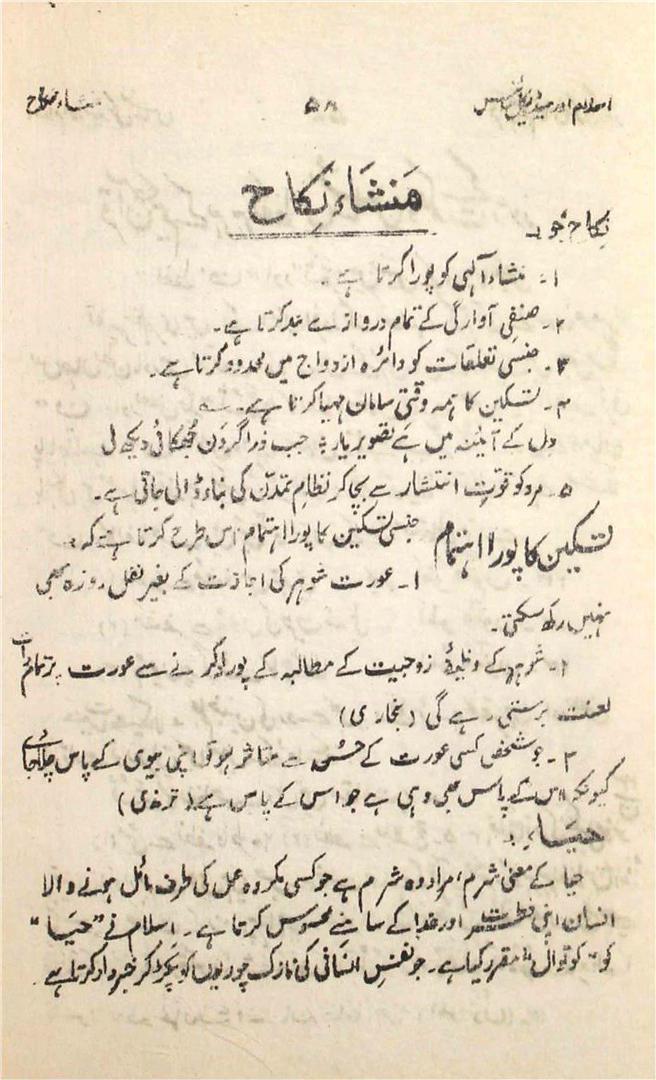 اسلام اور میڈیکل سائنس ۵۸ منشاء نکاح
مَنشَاءِ نِکَاح
نِکاح خُود
۱۔ منشاء الٰہی کو پورا کرتا ہے۔
۲۔ صنفی آوارگی کے تمام دروازے بند کرتا ہے۔
۳۔ جنسی تعلقات کو دائرہ ازدواج میں محدود کرتا ہے۔
۴۔ تسکین کا ہمہ وقتی سامان مہیا کرتا ہے۔ ؎
دل کے آئینہ میں ہے تصویر یار ؛ جب ذرا گردن جُھکائی دیکھ لی
۵۔ مرد کو قوّتِ انتشار سے بچا کر نظامِ تمدّن کی بناء ڈالی جاتی ہے۔
تسکین کا پورا اہتمام جنسی تسکین کا پورا اہتمام اس طرح کرتا ہے کہ :۔
۱۔ عورت شوہر کی اجازت کے بغیر نفل روزہ بھی
نہیں رکھ سکتی۔
۲۔ شوہر کے وظیفۂ زوجیت کے مطالبہ کے پورا نہ کرنے سے عورت پر تمام رات
لعنت برستی رہے گی (بخاری)
۳۔ جو شخص کسی عورت کے حُسن سے متاثر ہو تو اپنی بیوی کے پاس چلا جائے
کیونکہ اس کے پاس بھی وہی ہے جو اس کے پاس ہے (ترمذی)
حیَاء :۔
حیا کے معنی شرم، مراد وہ شرم ہے جو کسی مکروہ عمل کی طرف مائل ہونے والا
انسان اپنی فطرت اور خدا کے سامنے محسوس کرتا ہے۔ اسلام نے "حیَا"
کو "کوتوال" مقرر کیا ہے۔ جو نفسِ انسانی کی نازک چوریوں کو پکڑ کر خبردار کرتا ہے